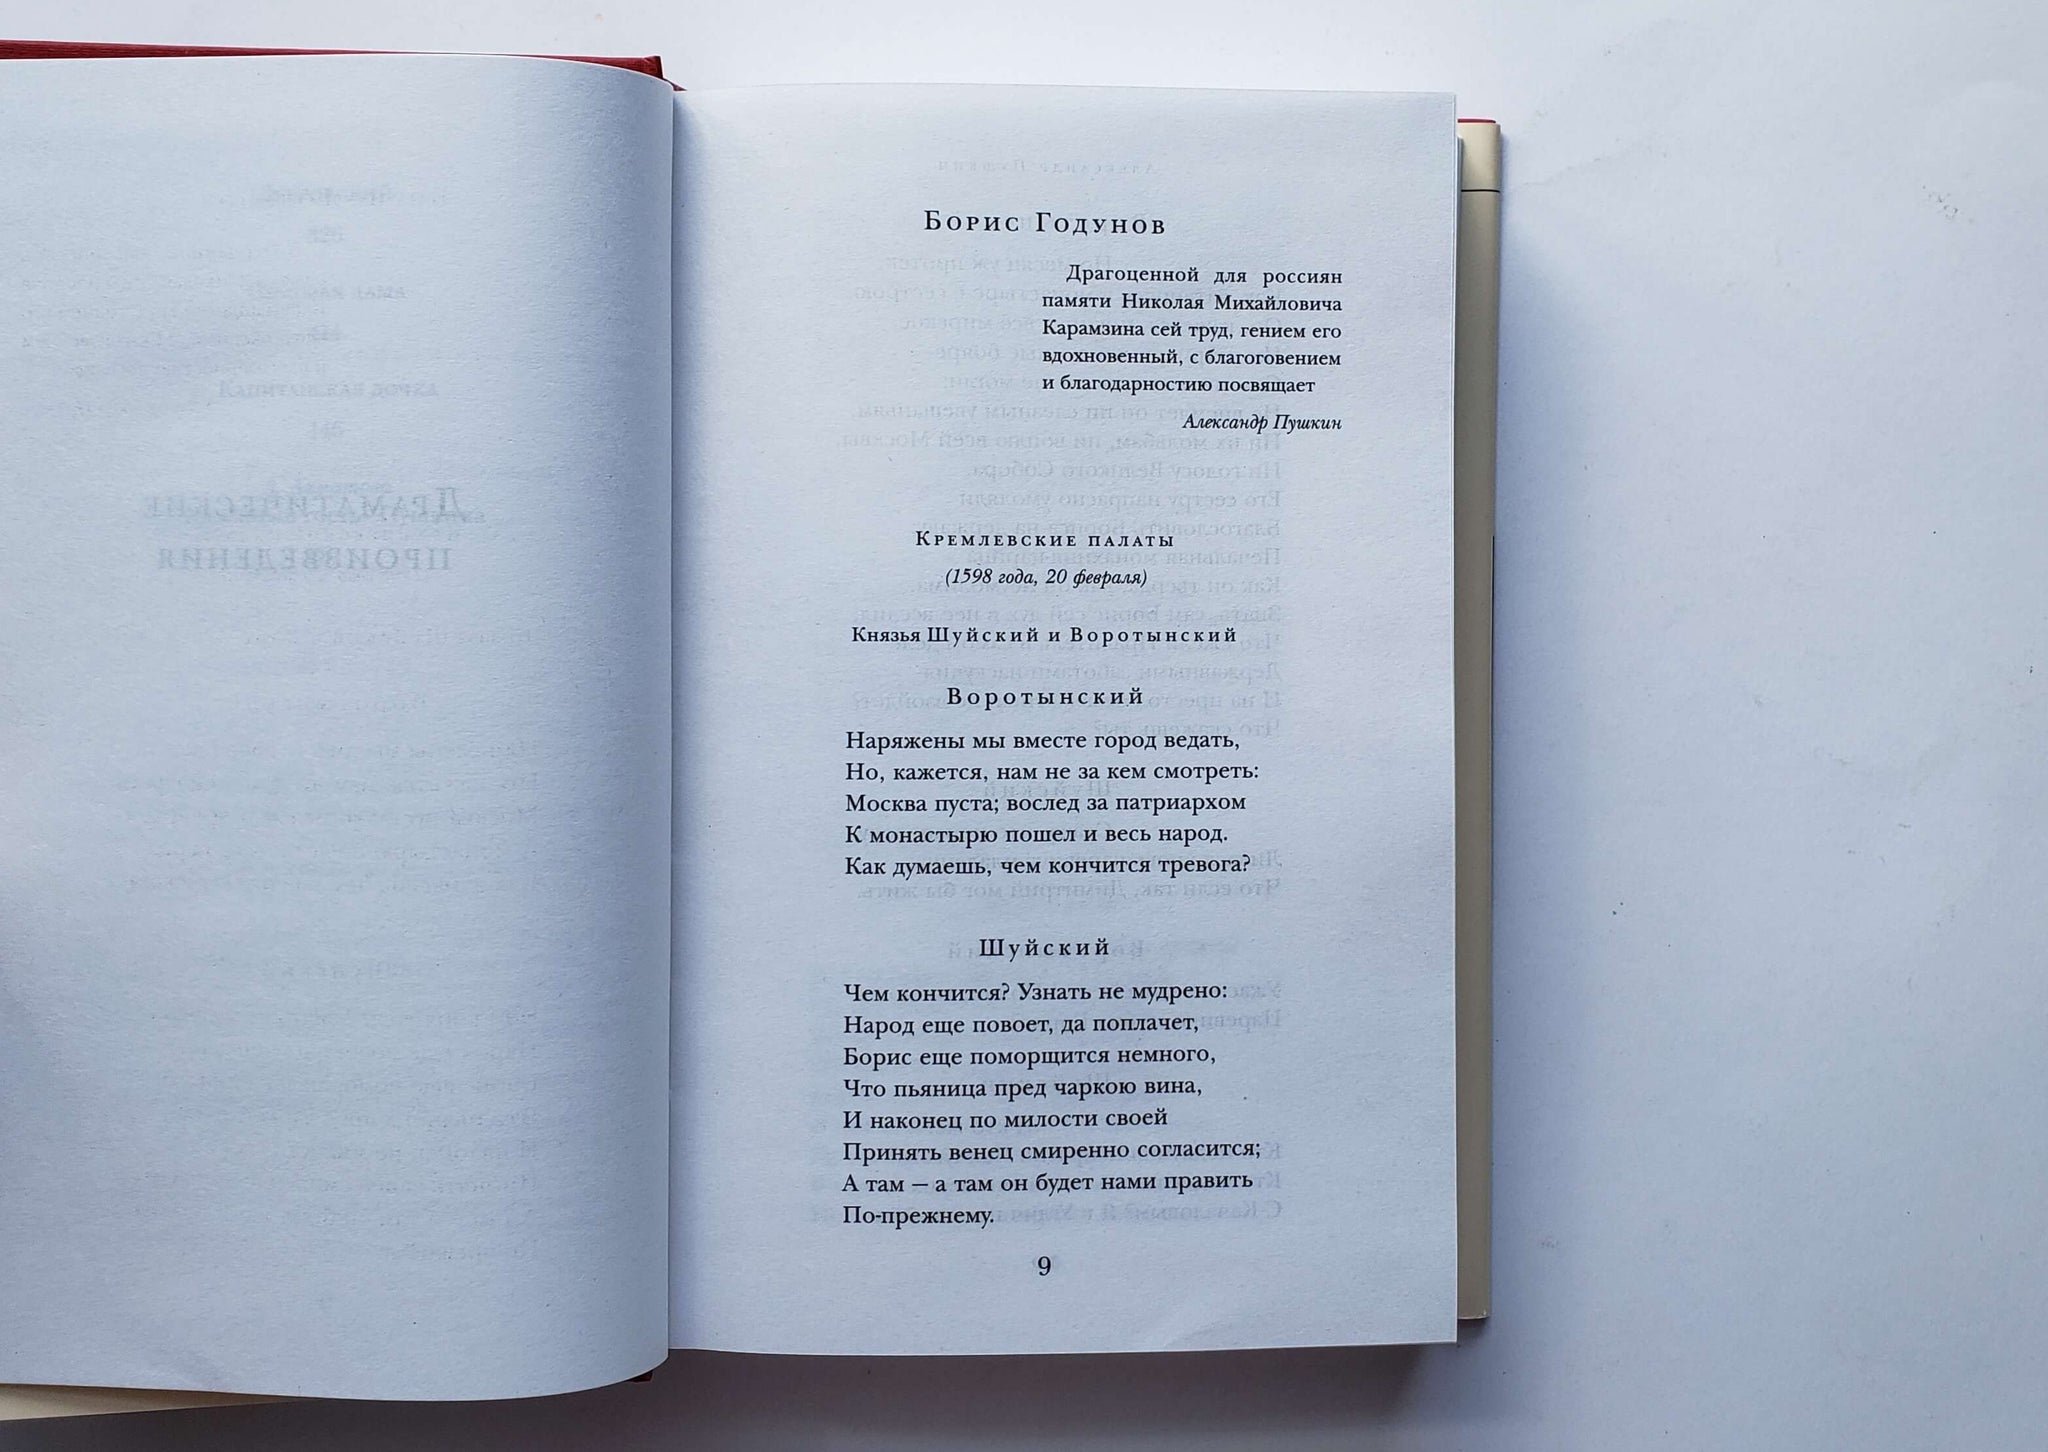 Борис Годунов
Драгоценной для россиян
памяти Николая Михайловича
Карамзина сей труд, гением его
вдохновенный, с благоговением
и благодарностию посвящает
Александр Пушкин
Кремлевские палаты
(1598 года, 20 февраля)
Князья Шуйский и Воротынский
Воротынский
Наряжены мы вместе город ведать,
Но, кажется, нам не за кем смотреть:
Москва пуста; вослед за патриархом
К монастырю пошел и весь народ.
Как думаешь, чем кончится тревога?
Шуйский
Чем кончится? Узнать не мудрено:
Народ еще повоет, да поплачет,
Борис еще поморщится немного,
Что пьяница пред чаркою вина,
И наконец по милости своей
Принять венец смиренно согласится;
А там — а там он будет нами править
По-прежнему.
9